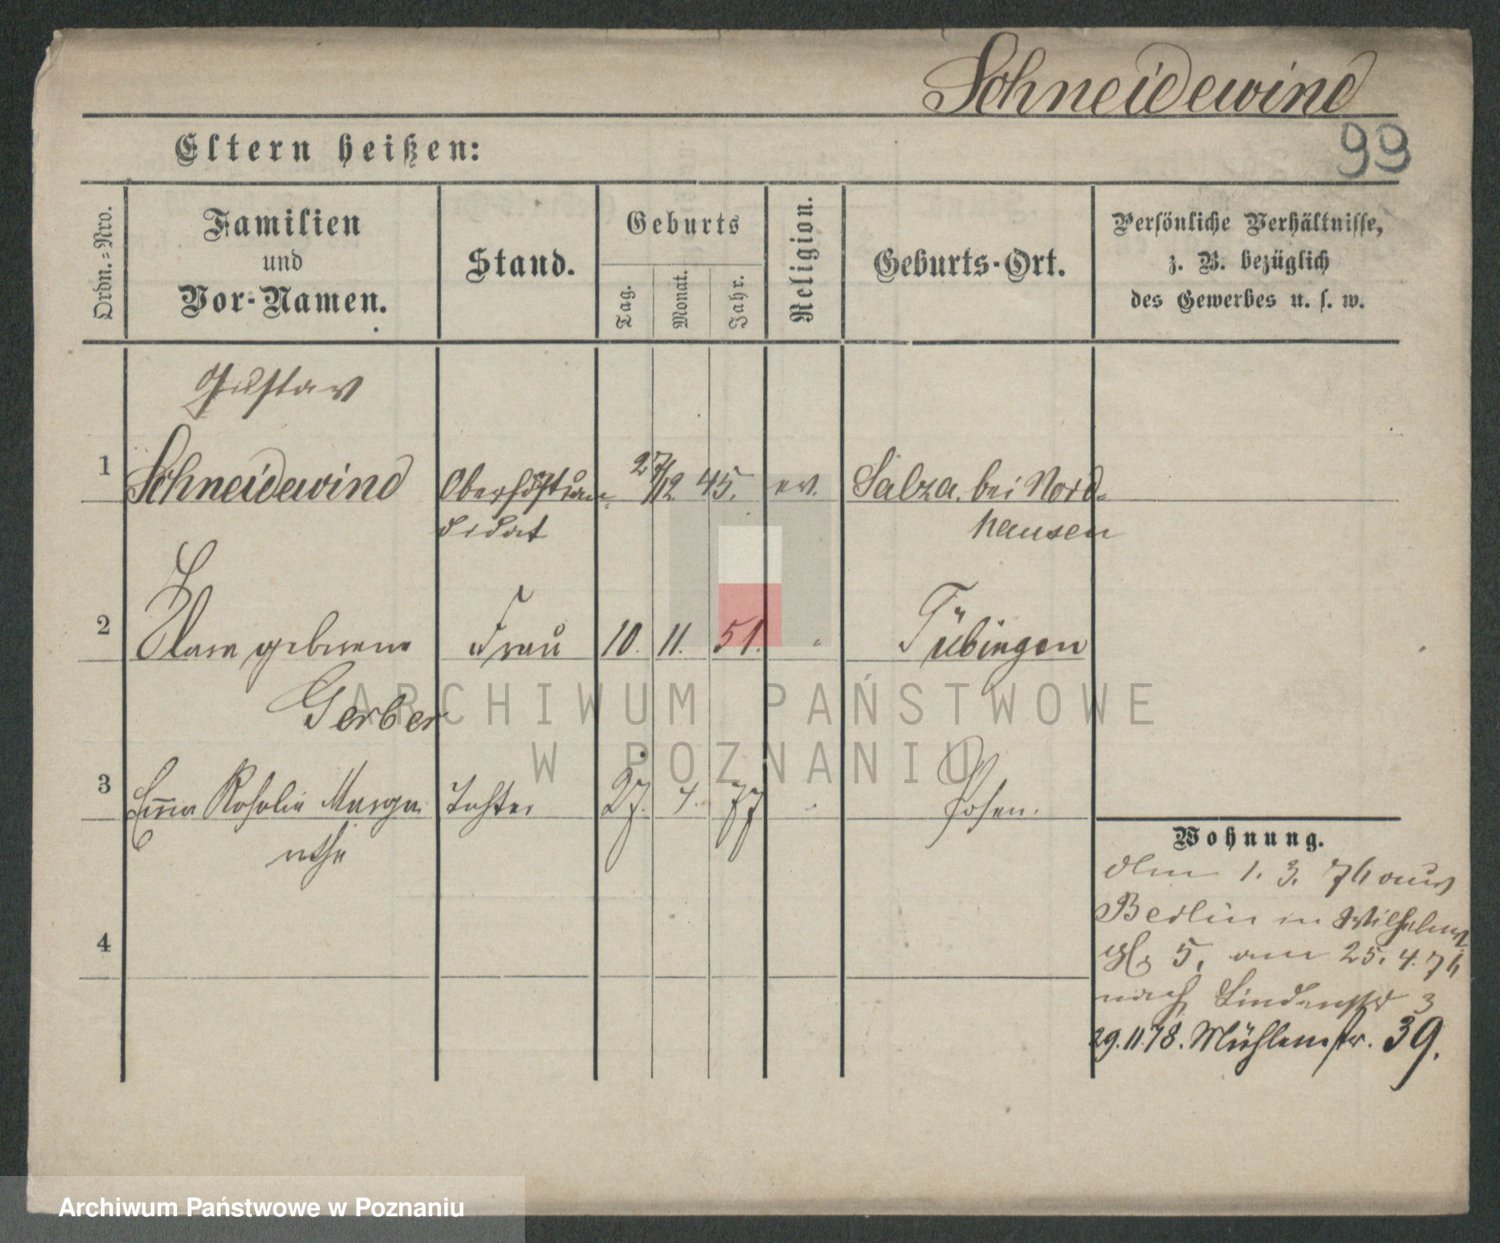 Schneidewind
99
Eltern heißen:
Ordn.-Nro.
Familien
und
Vor-Namen.
Stand.
Geburts
Tag.
Monat.
Jahr.
Religion.
Geburts-Ort.
Persönliche Verhältnisse,
z. B. bezüglich
des Gewerbes u. s. w.
Gustav
1 Schneidewind 27/12 45. ev. Salza bei Nord-
didat hausen
2 Clara geborene Frau 10. 11. 51. Tübingen
Gerber
3 Emma Rosalie Marga- Tochter 27. 4. 77 Posen.
rethe
4
Wohnung.
1. 3. 76 aus
Berlin in Wilhelms
5, am 25. 4. 76
nach Lindenstr 3
29.11.78. Mühlenstr. 39.
ARCHIWUM PAŃSTWOWE
W POZNANIU
Archiwum Państwowe w Poznaniu